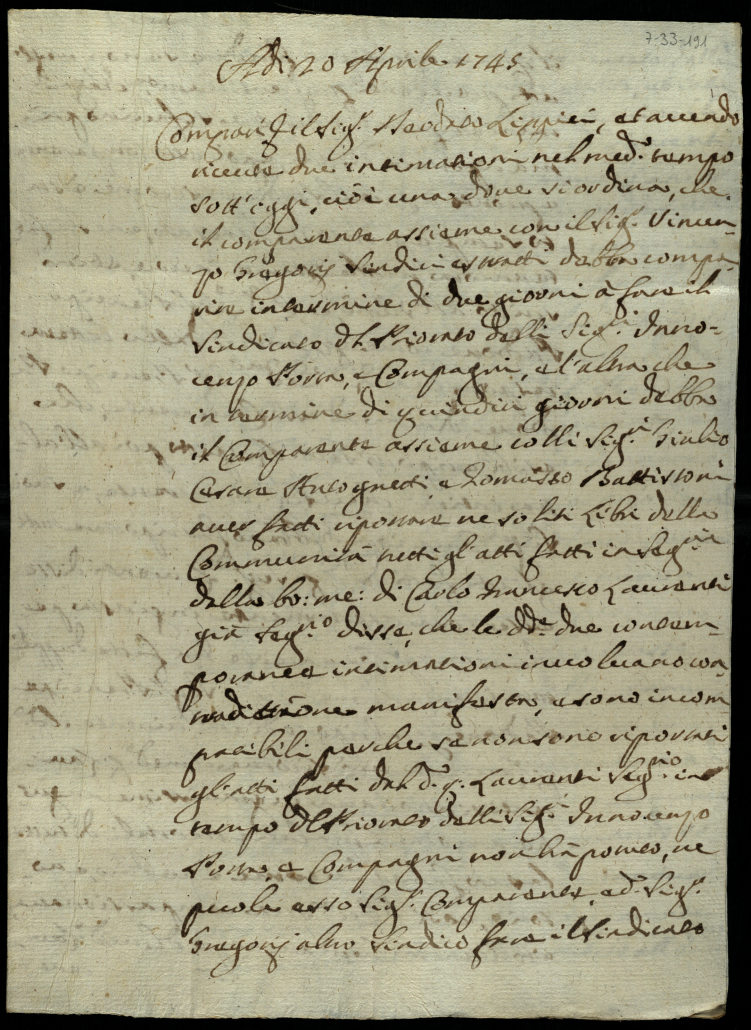 7-33-191
Adi 20 Aprile 1745
Compari il Sig.r Teodoro Lippici, et avendo
ricevute due intimationi nel med.o tempo
sott'oggi, cioè una dove si ordina, che
il comparente assieme con il Sig.r Vincen-
zo Gregorij Sindici estratti debba compa-
rire in termine di due giorni à fare il
Sindicato del Priorato delli Sig.ri Inno-
cenzo Porra, e Compagni, e l'altra che
in termine di quindici giorni debba
il Comparente assieme colli Sig.ri Giulio
Cesare Antognetti e Tomasso Battistoni
aver fatti riportare ne soliti Libri della
Communità tutti gl'atti fatti in Seg.ria
della bo: me: di Carlo Francesco Laurenti
già Seg.rio disse, che le dd.e due contem-
poranee intimationi involvano con-
tradittione manifesta, e sono incom
patibili perche se non sono riportati
gl'atti fatti dal d.o q. Laurenti Seg.rio in
tempo del Priorato delli Sig.ri Innocenzo
Porra, e Compagni non hà potuto, ne
puole esso Sig.r Comparente, ed Sig.r
Gregorij altro Sindico fare il Sindicato